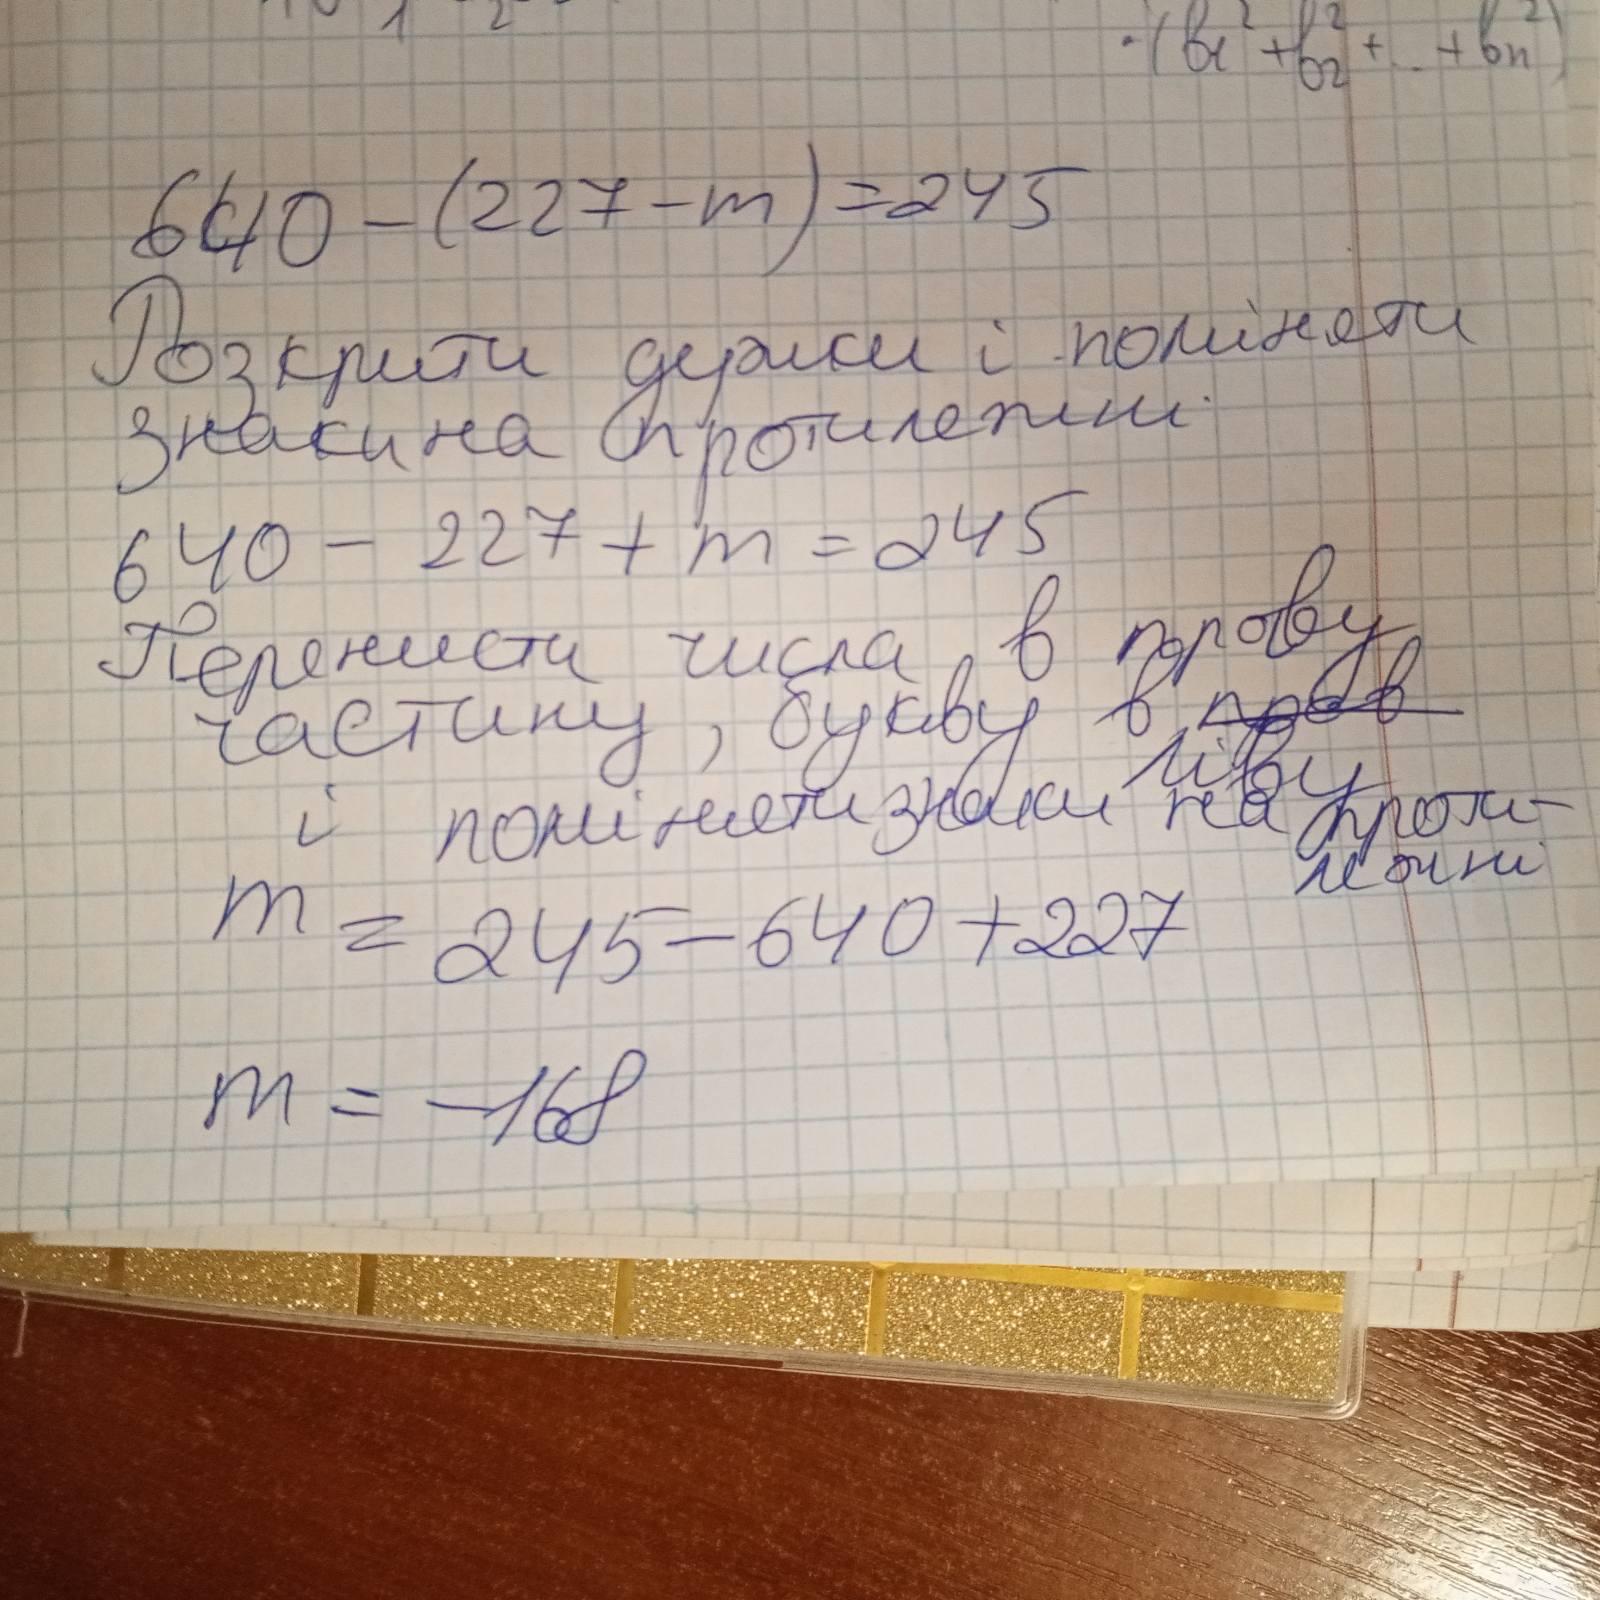 ·(b₁²+b₂²+...+bn²)
640-(227-m)=245
Розкрити дужки і поміняти
знаки на протилежні.
640-227+m=245
Перенисти числа в праву
частину, букву в прав
ліву
і поміняти знаки на проти-
лежні
m=245-640+227
m=-168